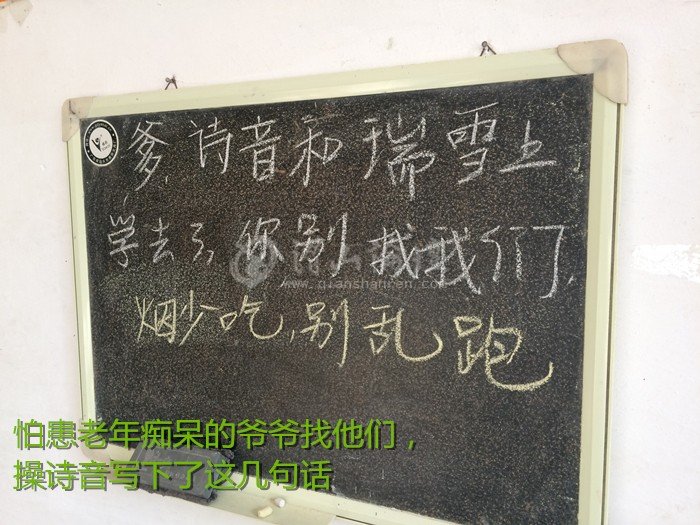 爹,诗音和瑞雪上
学去了,你别找我们,
烟少吃,别乱跑
www.quanshanren.com
怕患老年痴呆的爷爷找他们，
操诗音写下了这几句话